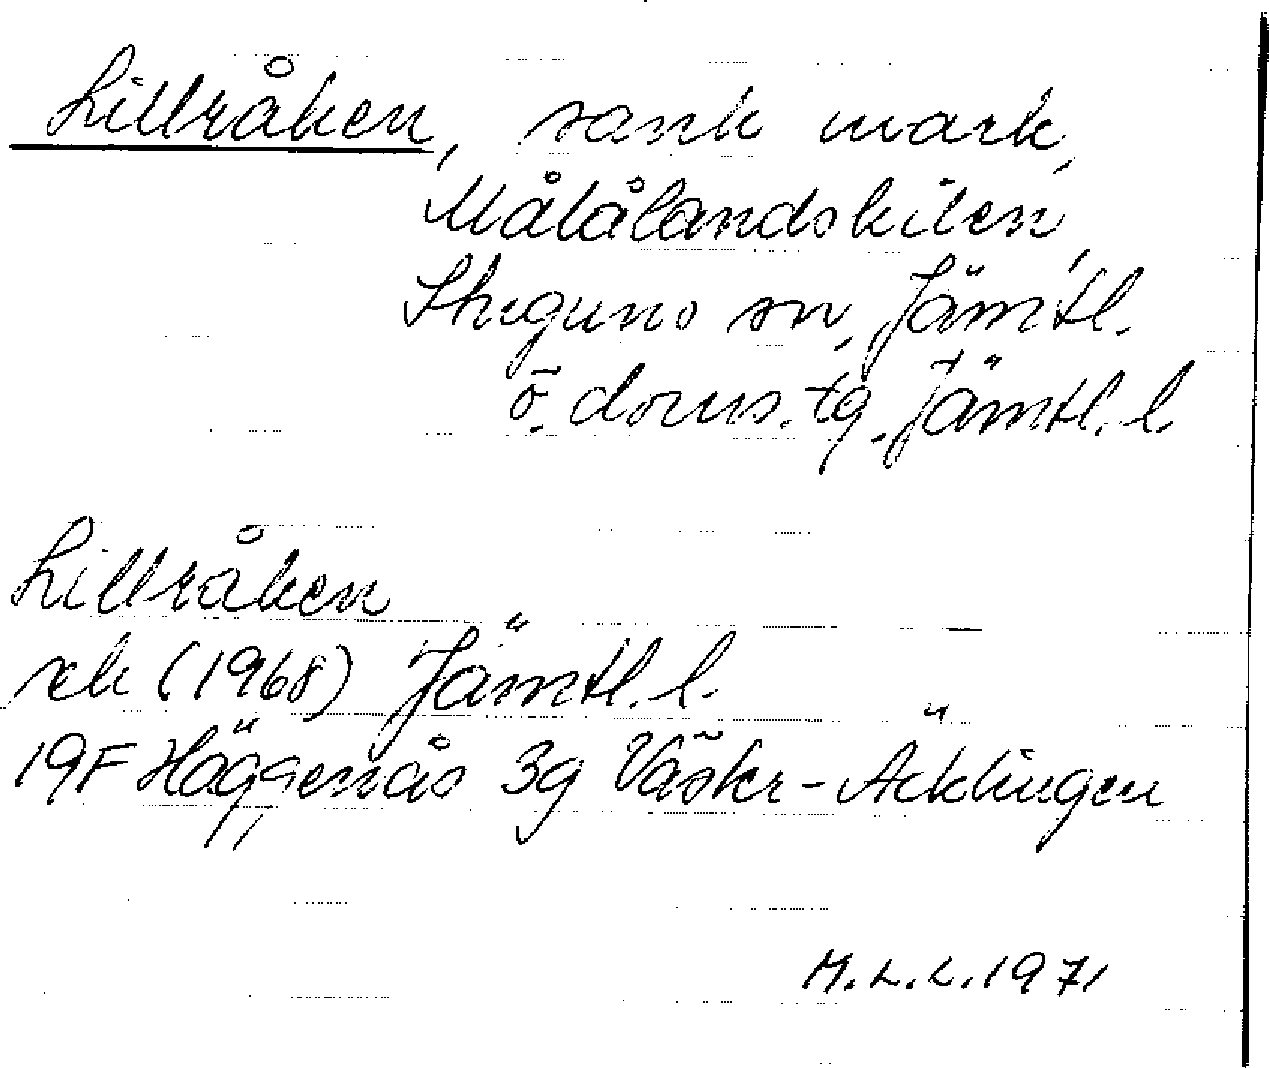 Lillråken, sank mark,
Målålandskilen,
Stuguns sn, Jämtl.
ö. doms. tg. Jämtl. l.
Lillråken
rek (1968) Jämtl. l.
19F Häggenås 3g Väster-Acklingen
M.L.L. 1971